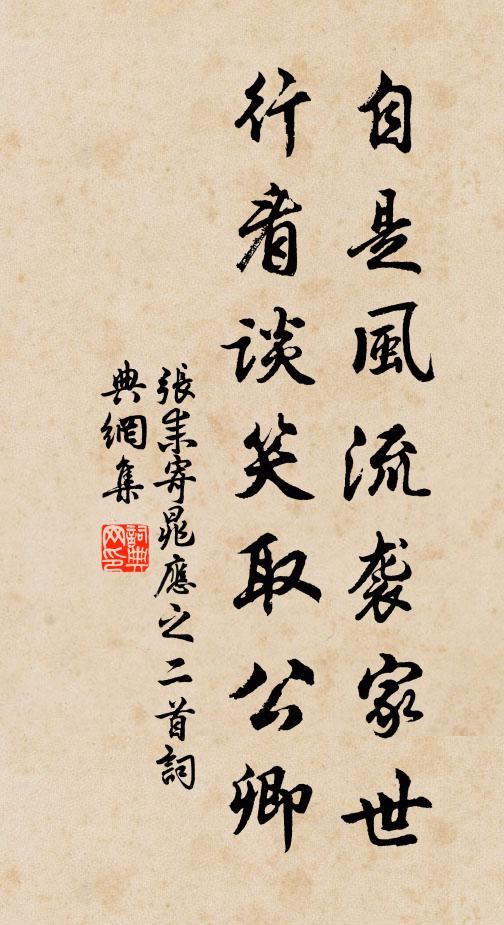 自是風流袭家世
行看談笑取公卿
張耒寄晁應之二首詞
典網集
詞典
网印